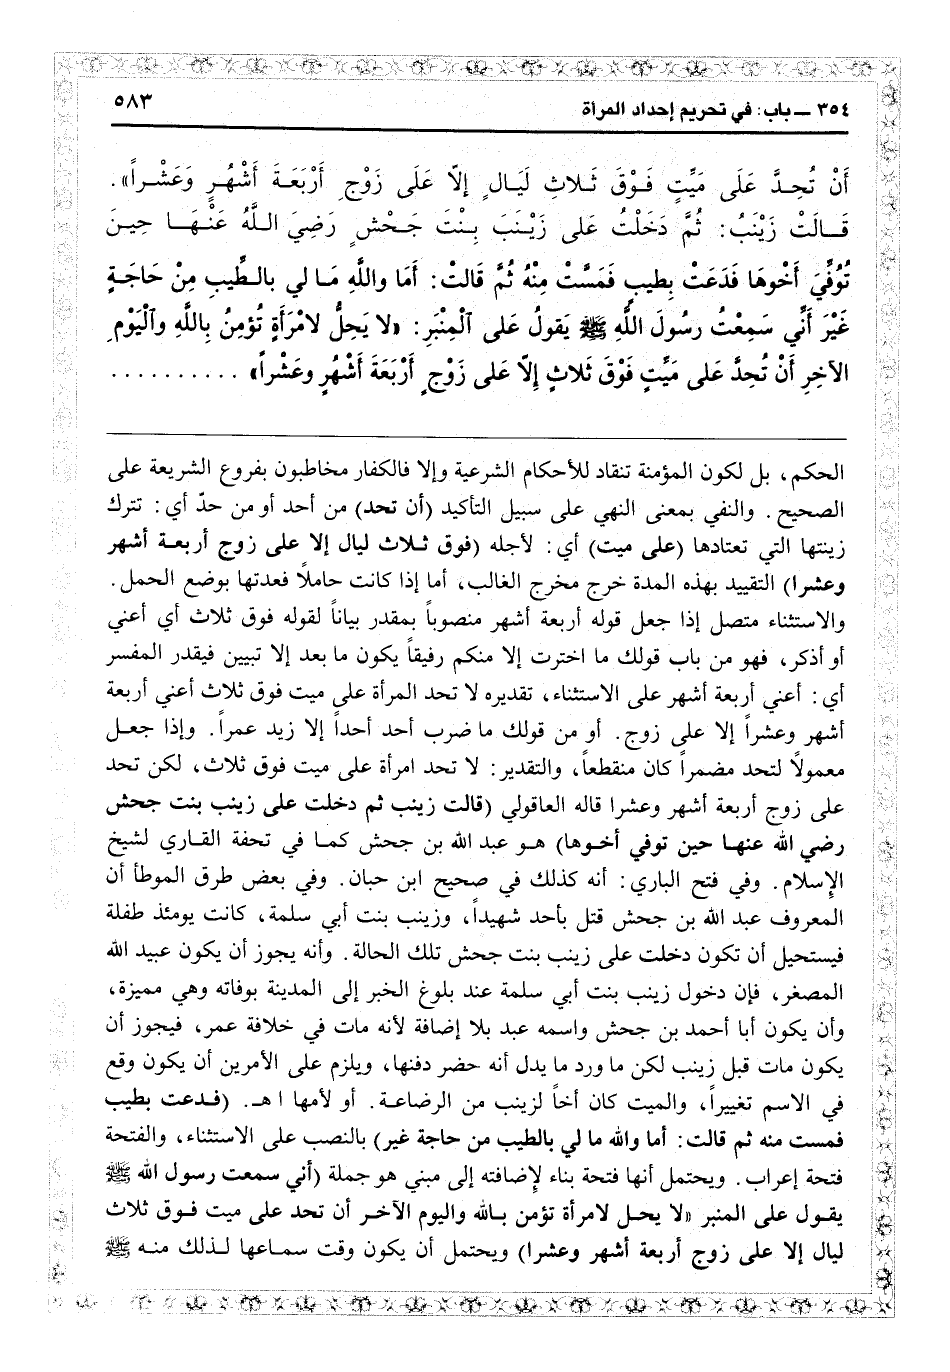 ٣٥٤ ــ باب: في تحريم إحداد المرأة
٥٨٣
أَنْ تُحِدَّ عَلَى مَيِّتٍ فَوْقَ ثَلاثِ لَيَالٍ إلّا عَلَى زَوْجِ أَرْبَعَةَ أَشْهُرٍ وَعَشْراً».
قَالَتْ زَيْنَبُ: ثُمَّ دَخَلْتُ عَلى زَيْنَبَ بِنْتَ جَحْشٍ رَضِيَ اللَّهُ عَنْهَا حِينَ
تُوُفِّيَ أَخُوهَا فَدَعَتْ بِطيبٍ فَمَسَّتْ مِنْهُ ثُمَّ قَالَتْ: أَمَا واللَّهِ مَا لي بالطِّيبِ مِنْ حَاجَةٍ
غَيْرَ أَنِّي سَمِعْتُ رسُولَ اللَّهِ ﷺ يَقولُ عَلى ٱلْمِنْبَرِ: «لا يَحِلُّ لامْرَأَةٍ تُؤمِنُ بِاللَّهِ وٱلْيَوْمِ
الآخِرِ أَنْ تُحِدَّ عَلى مَيِّتٍ فَوْقَ ثَلاثٍ إلّا عَلى زَوْجٍ أَرْبَعَةَ أَشْهُرٍ وعَشْراً» . . . . . . . . . .
الحكم، بل لكون المؤمنة تنقاد للأحكام الشرعية وإلا فالكفار مخاطبون بفروع الشريعة على
الصحيح. والنفي بمعنى النهي على سبيل التأكيد (أن تحد) من أحد أو من حدّ أي: تترك
زينتها التي تعتادها (على ميت) أي: لأجله (فوق ثلاث ليال إلا على زوج أربعة أشهر
وعشرا) التقييد بهذه المدة خرج مخرج الغالب، أما إذا كانت حاملاً فعدتها بوضع الحمل.
والاستثناء متصل إذا جعل قوله أربعة أشهر منصوباً بمقدر بياناً لقوله فوق ثلاث أي أعني
أو أذكر، فهو من باب قولك ما اخترت إلا منكم رفيقاً يكون ما بعد إلا تبيين فيقدر المفسر
أي: أعني أربعة أشهر على الاستثناء، تقديره لا تحد المرأة على ميت فوق ثلاث أعني أربعة
أشهر وعشراً إلا على زوج. أو من قولك ما ضرب أحد أحداً إلا زيد عمراً. وإذا جعل
معمولاً لتحد مضمراً كان منقطعاً، والتقدير: لا تحد امرأة على ميت فوق ثلاث، لكن تحد
على زوج أربعة أشهر وعشرا قاله العاقولي (قالت زينب ثم دخلت على زينب بنت جحش
رضي الله عنها حين توفي أخوها) هو عبد الله بن جحش كما في تحفة القاري لشيخ
الإسلام. وفي فتح الباري: أنه كذلك في صحيح ابن حبان. وفي بعض طرق الموطأ أن
المعروف عبد الله بن جحش قتل بأحد شهيداً، وزينب بنت أبي سلمة، كانت يومئذ طفلة
فيستحيل أن تكون دخلت على زينب بنت جحش تلك الحالة. وأنه يجوز أن يكون عبيد الله
المصغر، فإن دخول زينب بنت أبي سلمة عند بلوغ الخبر إلى المدينة بوفاته وهي مميزة،
وأن يكون أبا أحمد بن جحش واسمه عبد بلا إضافة لأنه مات في خلافة عمر، فيجوز أن
يكون مات قبل زينب لكن ما ورد ما يدل أنه حضر دفنها، ويلزم على الأمرين أن يكون وقع
في الاسم تغييراً، والميت كان أخاً لزينب من الرضاعة. أو لأمها ا هـ. (فدعت بطيب
فمست منه ثم قالت: أما والله ما لي بالطيب من حاجة غير) بالنصب على الاستثناء، والفتحة
فتحة إعراب. ويحتمل أنها فتحة بناء لإضافته إلى مبني هو جملة (أني سمعت رسول الله ﷺ
يقول على المنبر «لا يحل لامرأة تؤمن بالله واليوم الآخر أن تحد على ميت فوق ثلاث
ليال إلا على زوج أربعة أشهر وعشرا) ويحتمل أن يكون وقت سماعها لذلك منه ﷺ